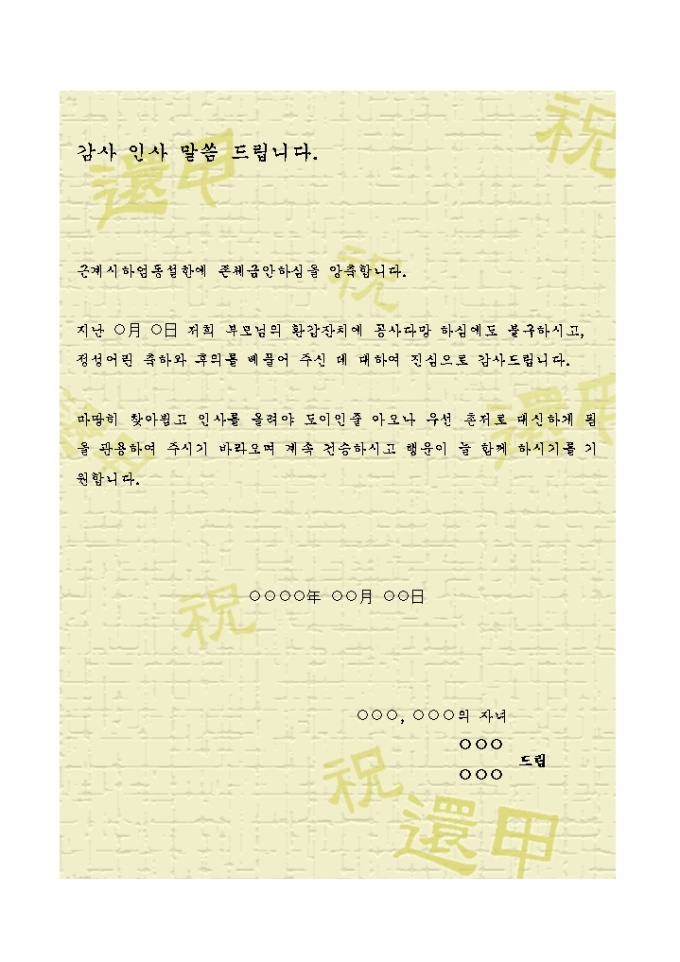 감사 인사 말씀 드립니다.
근계시하엄동설한에 존체금안하심을 앙축합니다.
지난 ○月 ○日 저희 부모님의 환갑잔치에 공사다망 하심에도 불구하시고,
정성어린 축하와 후의를 베풀어 주신 데 대하여 진심으로 감사드립니다.
마땅히 찾아뵙고 인사를 올려야 도이인줄 아오나 우선 촌저로 대신하게 됨
을 관용하여 주시기 바라오며 계속 건승하시고 행운이 늘 함께 하시기를 기
원합니다.
○○○○年 ○○月 ○○日
○○○, ○○○의 자녀
○○○
드림
○○○
祝
還甲
祝
還甲
祝
祝
還甲